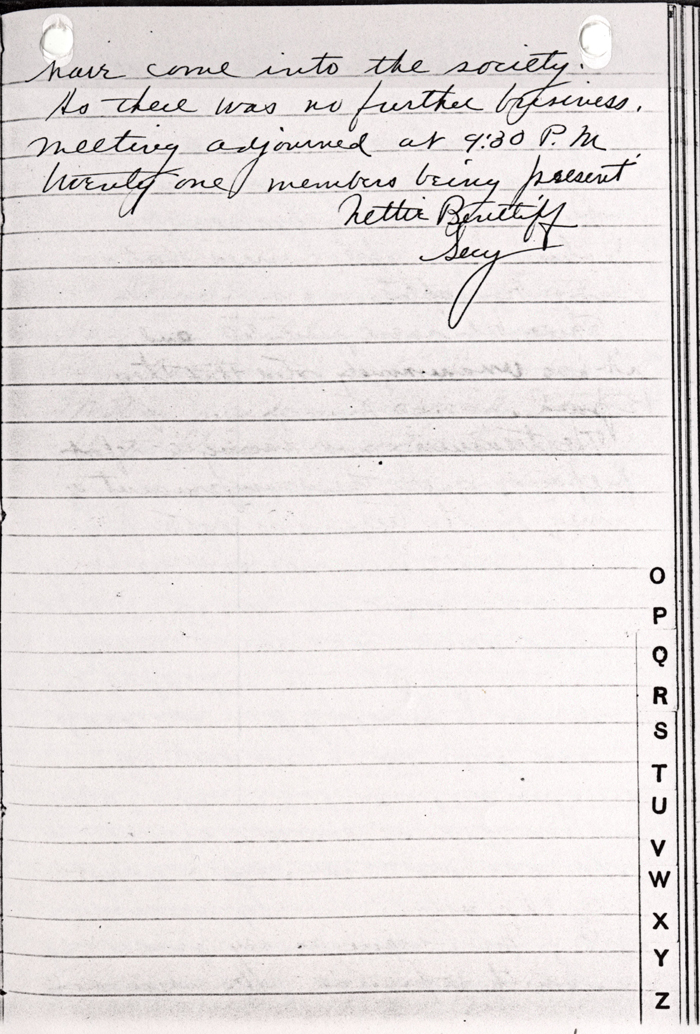 have come into the society.
As there was no further business,
meeting adjourned at 9:30 P.M.
twenty one members being present.
Nettie
Secy
O
P
Q
R
S
T
U
V
W
X
Y
Z